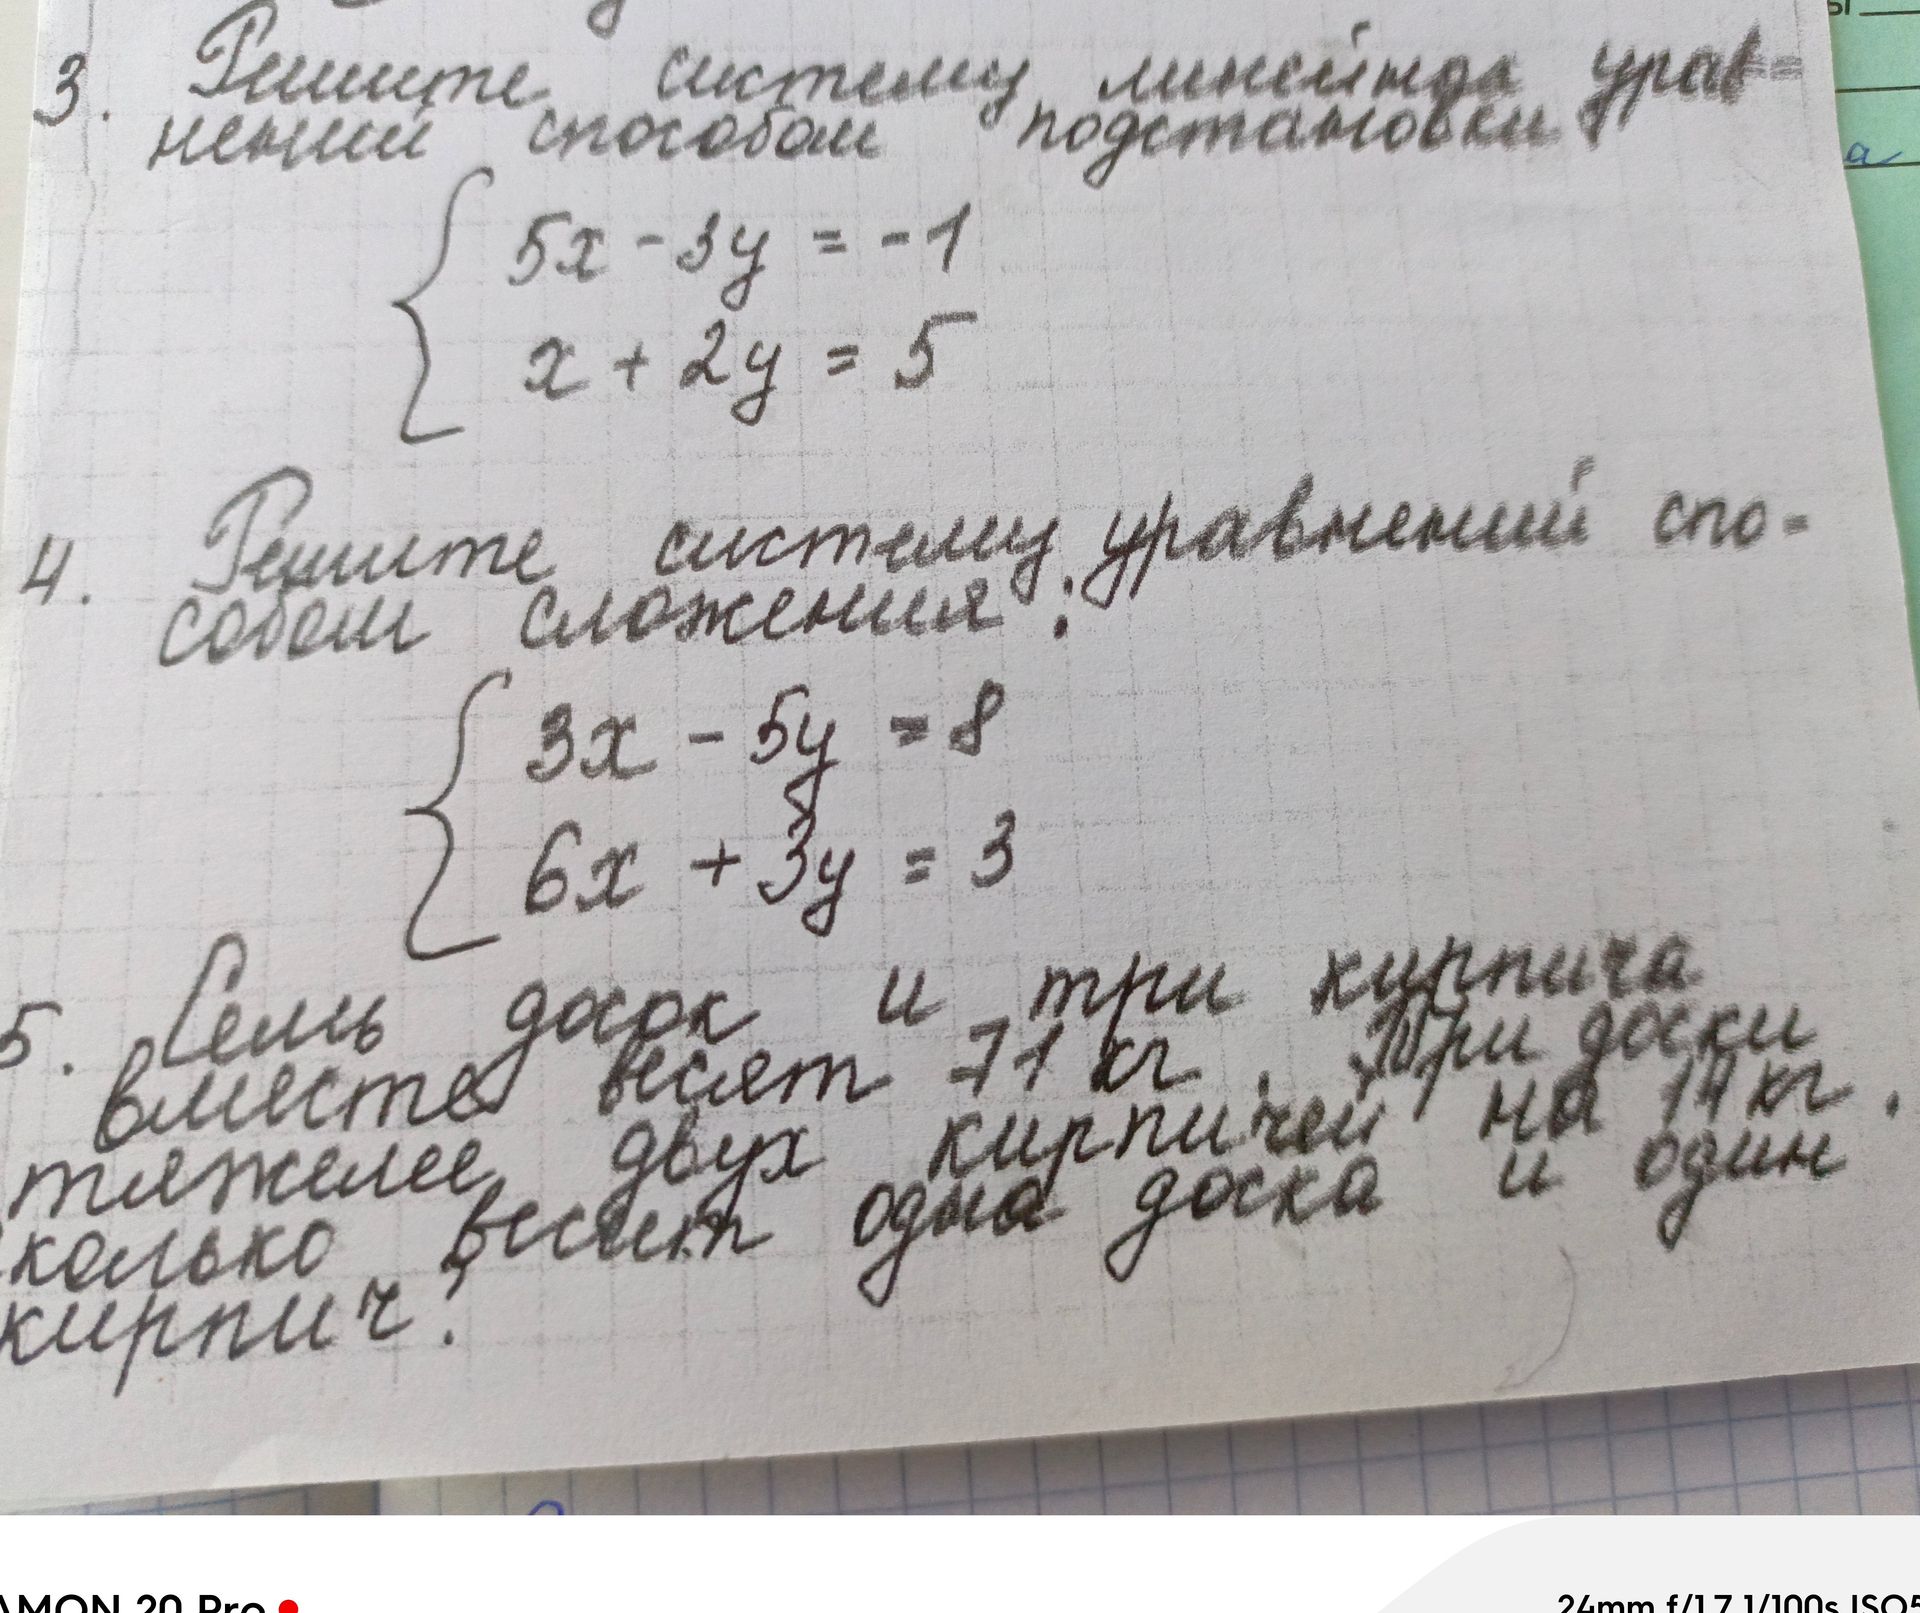 3. Решите систему линейнда урав=
нений способом подстановки
5x - 3y = -1
x + 2y = 5
4. Решите систему уравнений спо-
собом сложения:
3x - 5y = 8
6x + 3y = 3
5. Семь досок и три кирпича
вместе весят 71 кг. Три доски
тяжелее двух кирпичей на 14 кг.
сколько весят одна доска и один
кирпич?
24mm f/1.7 1/100s ISO5
AMON 20 Pro